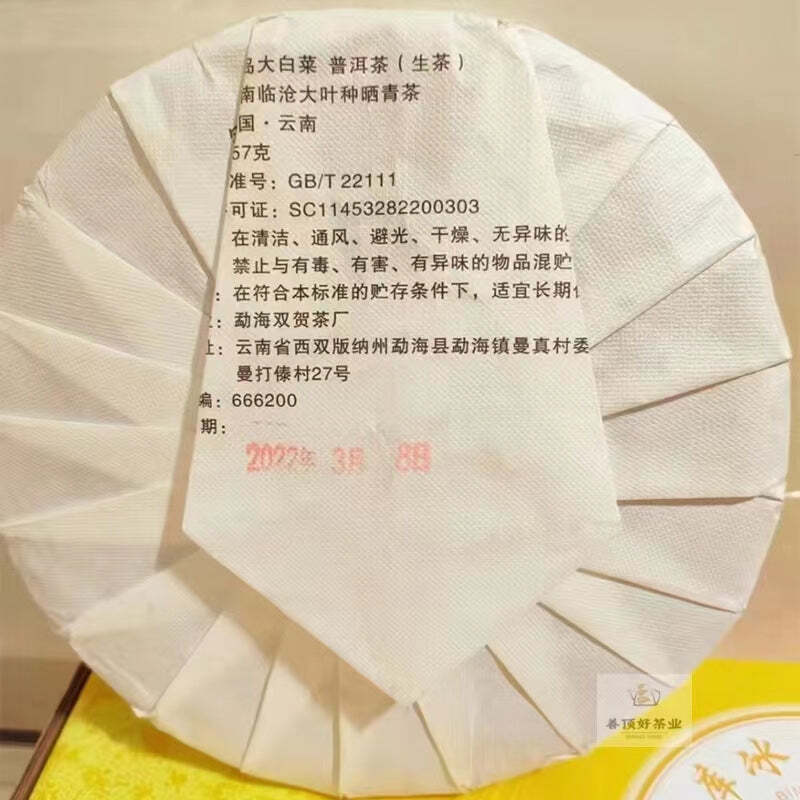 大白菜 普洱茶（生茶）
南临沧大叶种晒青茶
国·云南
57克
准号：GB/T 22111
可证：SC11453282200303
在清洁、通风、避光、干燥、无异味的
禁止与有毒、有害、有异味的物品混贮
：在符合本标准的贮存条件下，适宜长期
：勐海双贺茶厂
址：云南省西双版纳州勐海县勐海镇曼真村委
曼打傣村27号
编：666200
期：
2022年 3月 8日
善顶好茶业
库冰